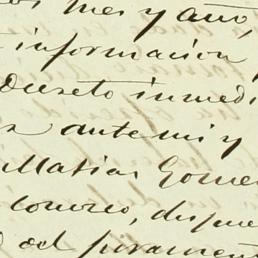 mes y año,
informacion
Decreto inmedi
ante mi y
Matias Gome
conoceo, dispue
del juramento